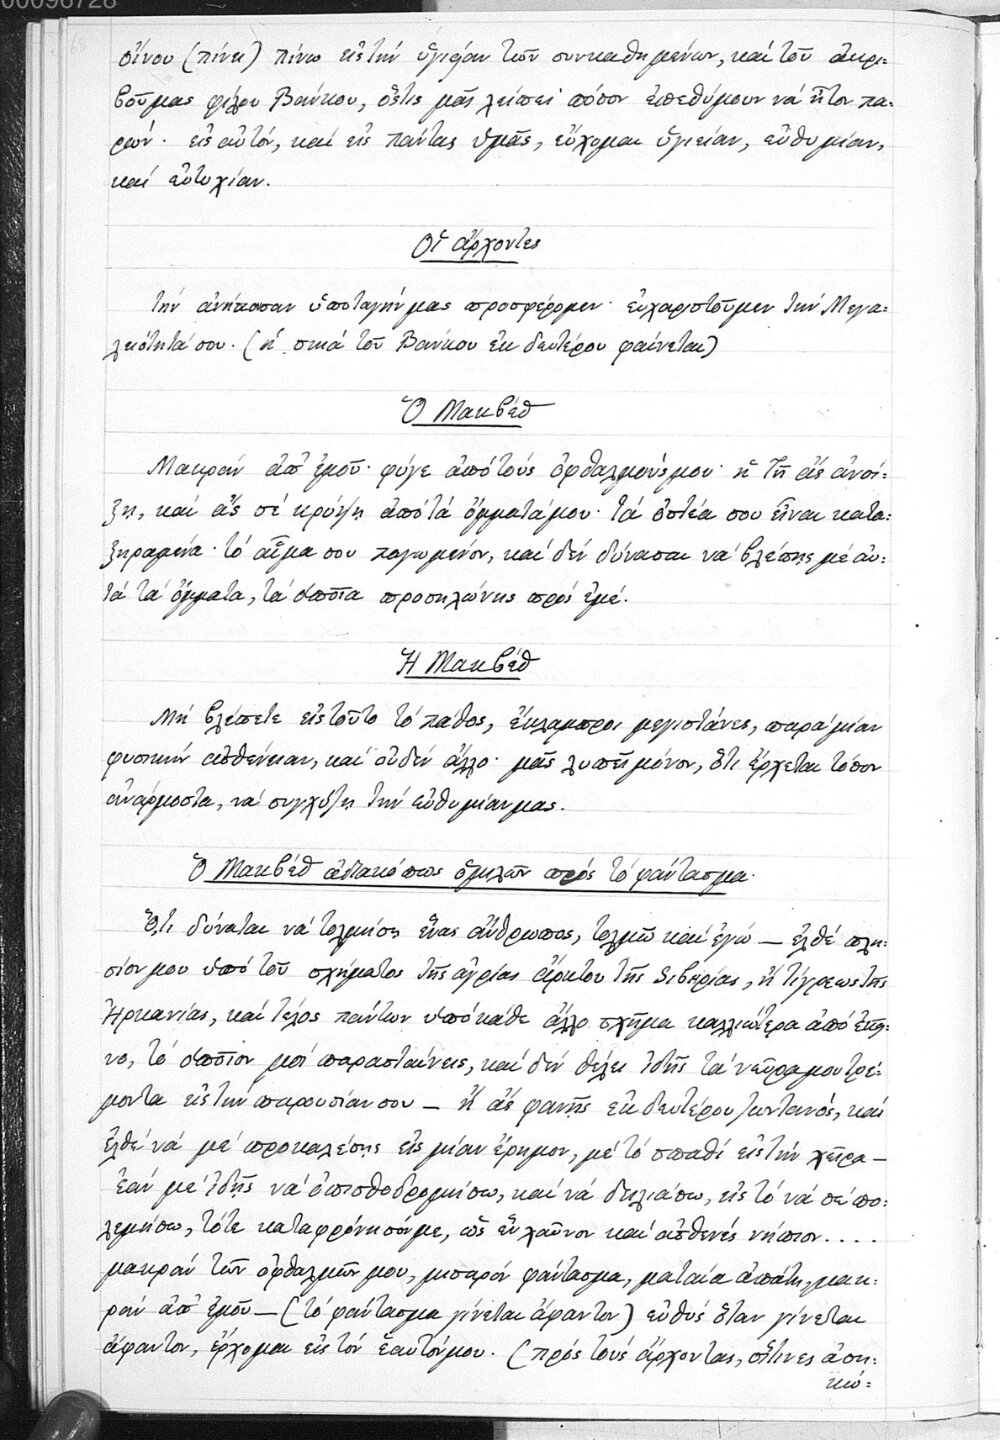 00096728
οἴνου (πίνει) πίνω εἰς τὴν ὑγιείαν τῶν συνκαθημένων, καὶ τοῦ ἀκρι-
βοῦ μας φίλου Βάνκου, ὅστις μᾶς λείπει· πόσον ἐπεθύμουν νὰ ἦτον πα-
ρών· εἰς αὐτόν, καὶ εἰς πάντας ὑμᾶς, εὔχομαι ὑγιείαν, εὐθυμίαν,
καὶ εὐτυχίαν.
Οἱ ἄρχοντες
τὴν ἀνήκουσαν ὑποταγήν μας προσφέρομεν· εὐχαριστοῦμεν τὴν Μεγα-
λειότητά σου. (ἡ σκιὰ τοῦ Βάνκου ἐκ δευτέρου φαίνεται)
Ὁ Μακβὲθ
Μακρὰν ἀπ' ἐμοῦ· φύγε ἀπὸ τοὺς ὀφθαλμούς μου· ἡ γῆ ἂς ἀνοί-
ξῃ, καὶ ἂς σὲ κρύψῃ ἀπὸ τὰ ὄμματά μου· τὰ ὀστέα σου εἶναι κατα-
ξηραμένα· τὸ αἷμα σου παγωμένον, καὶ δὲν δύνασαι νὰ βλέπῃς μὲ αὐ-
τὰ τὰ ὄμματα, τὰ ὁποῖα προσηλώνεις πρὸς ἐμέ.
Ἡ Μακβὲθ
Μὴ βλέπετε εἰς τοῦτο τὸ πάθος, ἔκλαμπροι μεγιστάνες, παρὰ μίαν
φυσικὴν ἀσθένειαν, καὶ οὐδὲν ἄλλο· μᾶς λυπεῖ μόνον, ὅτι ἔρχεται τόσον
ἀνάρμοστα, νὰ συγχύσῃ τὴν εὐθυμίαν μας.
Ὁ Μακβὲθ ἀδιακόπως ὁμιλῶν πρὸς τὸ φάντασμα.
Ὅ,τι δύναται νὰ τολμήσῃ ἕνας ἄνθρωπος, τολμῶ καὶ ἐγώ — ἐλθὲ πλη-
σίον μου ὑπὸ τοῦ σχήματος τῆς ἀγρίας ἄρκτου τῆς Σιβηρίας, ἢ τίγρεως τῆς
Ἡρκανίας, καὶ τέλος πάντων ὑπὸ κάθε ἄλλο σχῆμα καλλιώτερα ἀπὸ ἐκεῖ-
νο, τὸ ὁποῖον μοὶ παρασταίνεις, καὶ δὲν θέλει ἰδῇς τὰ νεῦρα μου τρέ-
μοντα εἰς τὴν παρουσίαν σου — ἢ ἂς φανῇς ἐκ δευτέρου ζωντανός, καὶ
ἐλθὲ νὰ μὲ προκαλέσῃς εἰς μίαν ἔρημον, μὲ τὸ σπαθὶ εἰς τὴν χεῖρα —
ἐὰν μὲ ἰδῇς νὰ ὀπισθοδρομήσω, καὶ νὰ δειλιάσω, εἰς τὸ νὰ σὲ πο-
λεμήσω, τότε καταφρόνησόν με, ὡς ἓν χαῦνον καὶ ἀσθενὲς νήπιον....
μακρὰν τῶν ὀφθαλμῶν μου, μιαρὸν φάντασμα, ματαία ἀπάτη, μακ-
ρὰν ἀπ' ἐμοῦ — (τὸ φάντασμα γίνεται ἄφαντον) εὐθὺς ὅταν γίνεται
ἄφαντον, ἔρχομαι εἰς τὸν ἑαυτόν μου. (πρὸς τοὺς ἄρχοντας, οἵτινες ἀση-
κώ-